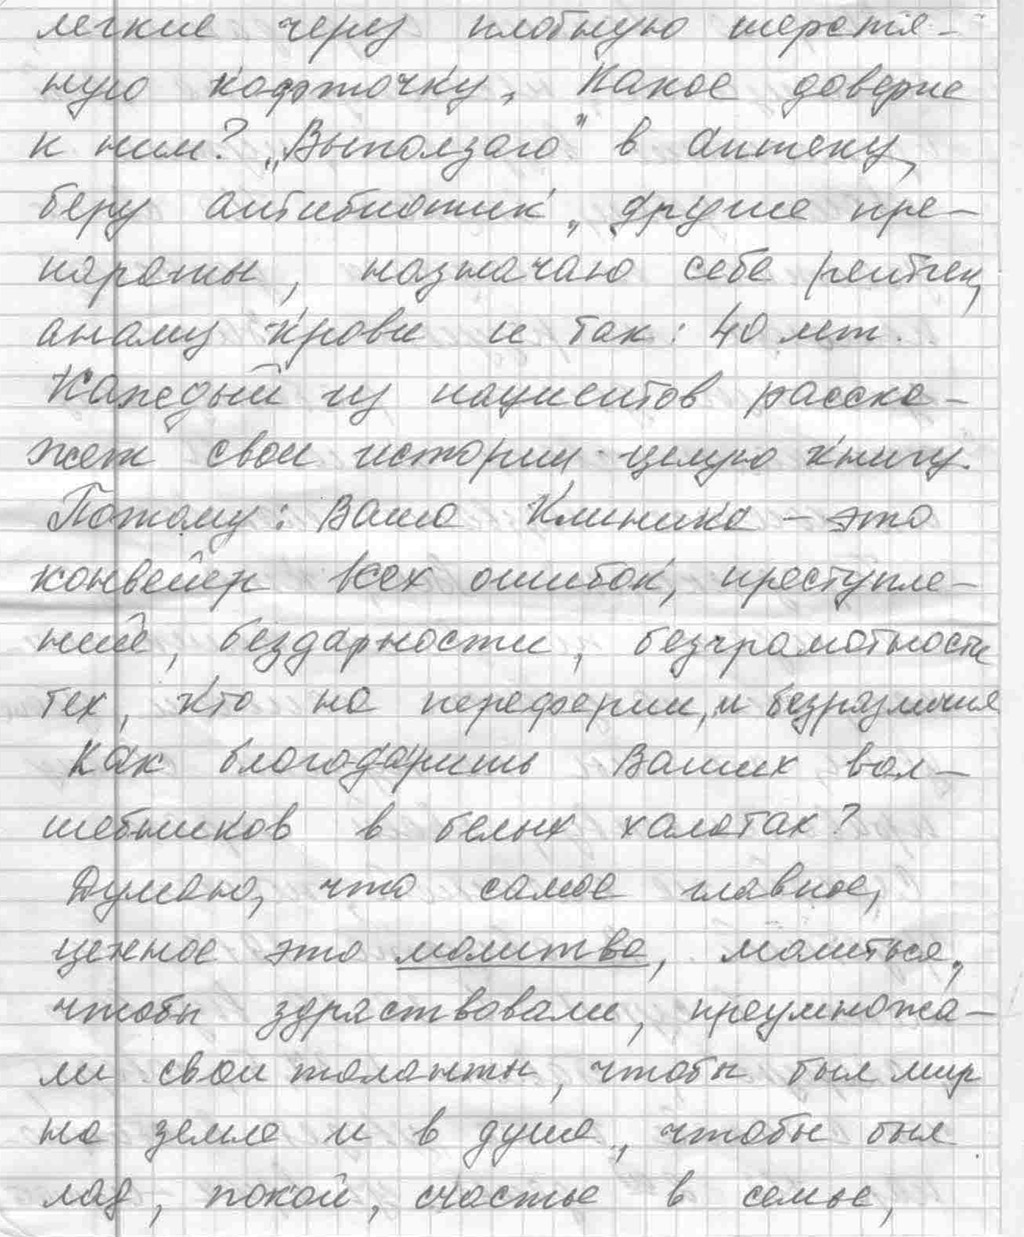 легкие через плотную шерстя-
ную кофточку. Какое доверие
к ним? „Выползаю" в аптеку,
беру антибиотик, другие пре-
параты, назначаю себе рентген,
анализ крови и так: 40 лет.
Каждый из пациентов расска-
жет свои истории целую книгу.
Потому: Ваша Клиника - это
конвейер всех ошибок, преступле-
ний, бездарности, безграмотности
тех, кто на переферии, и безразличия
Как благодарить Ваших вол-
шебников в белых халатах?
Думаю, что самое главное,
ценное это молитва, молиться,
чтобы здраствовали, преумножа-
ли свои таланты, чтобы был мир
на земле и в душе, чтобы был
лад, покой, счастье в семье,